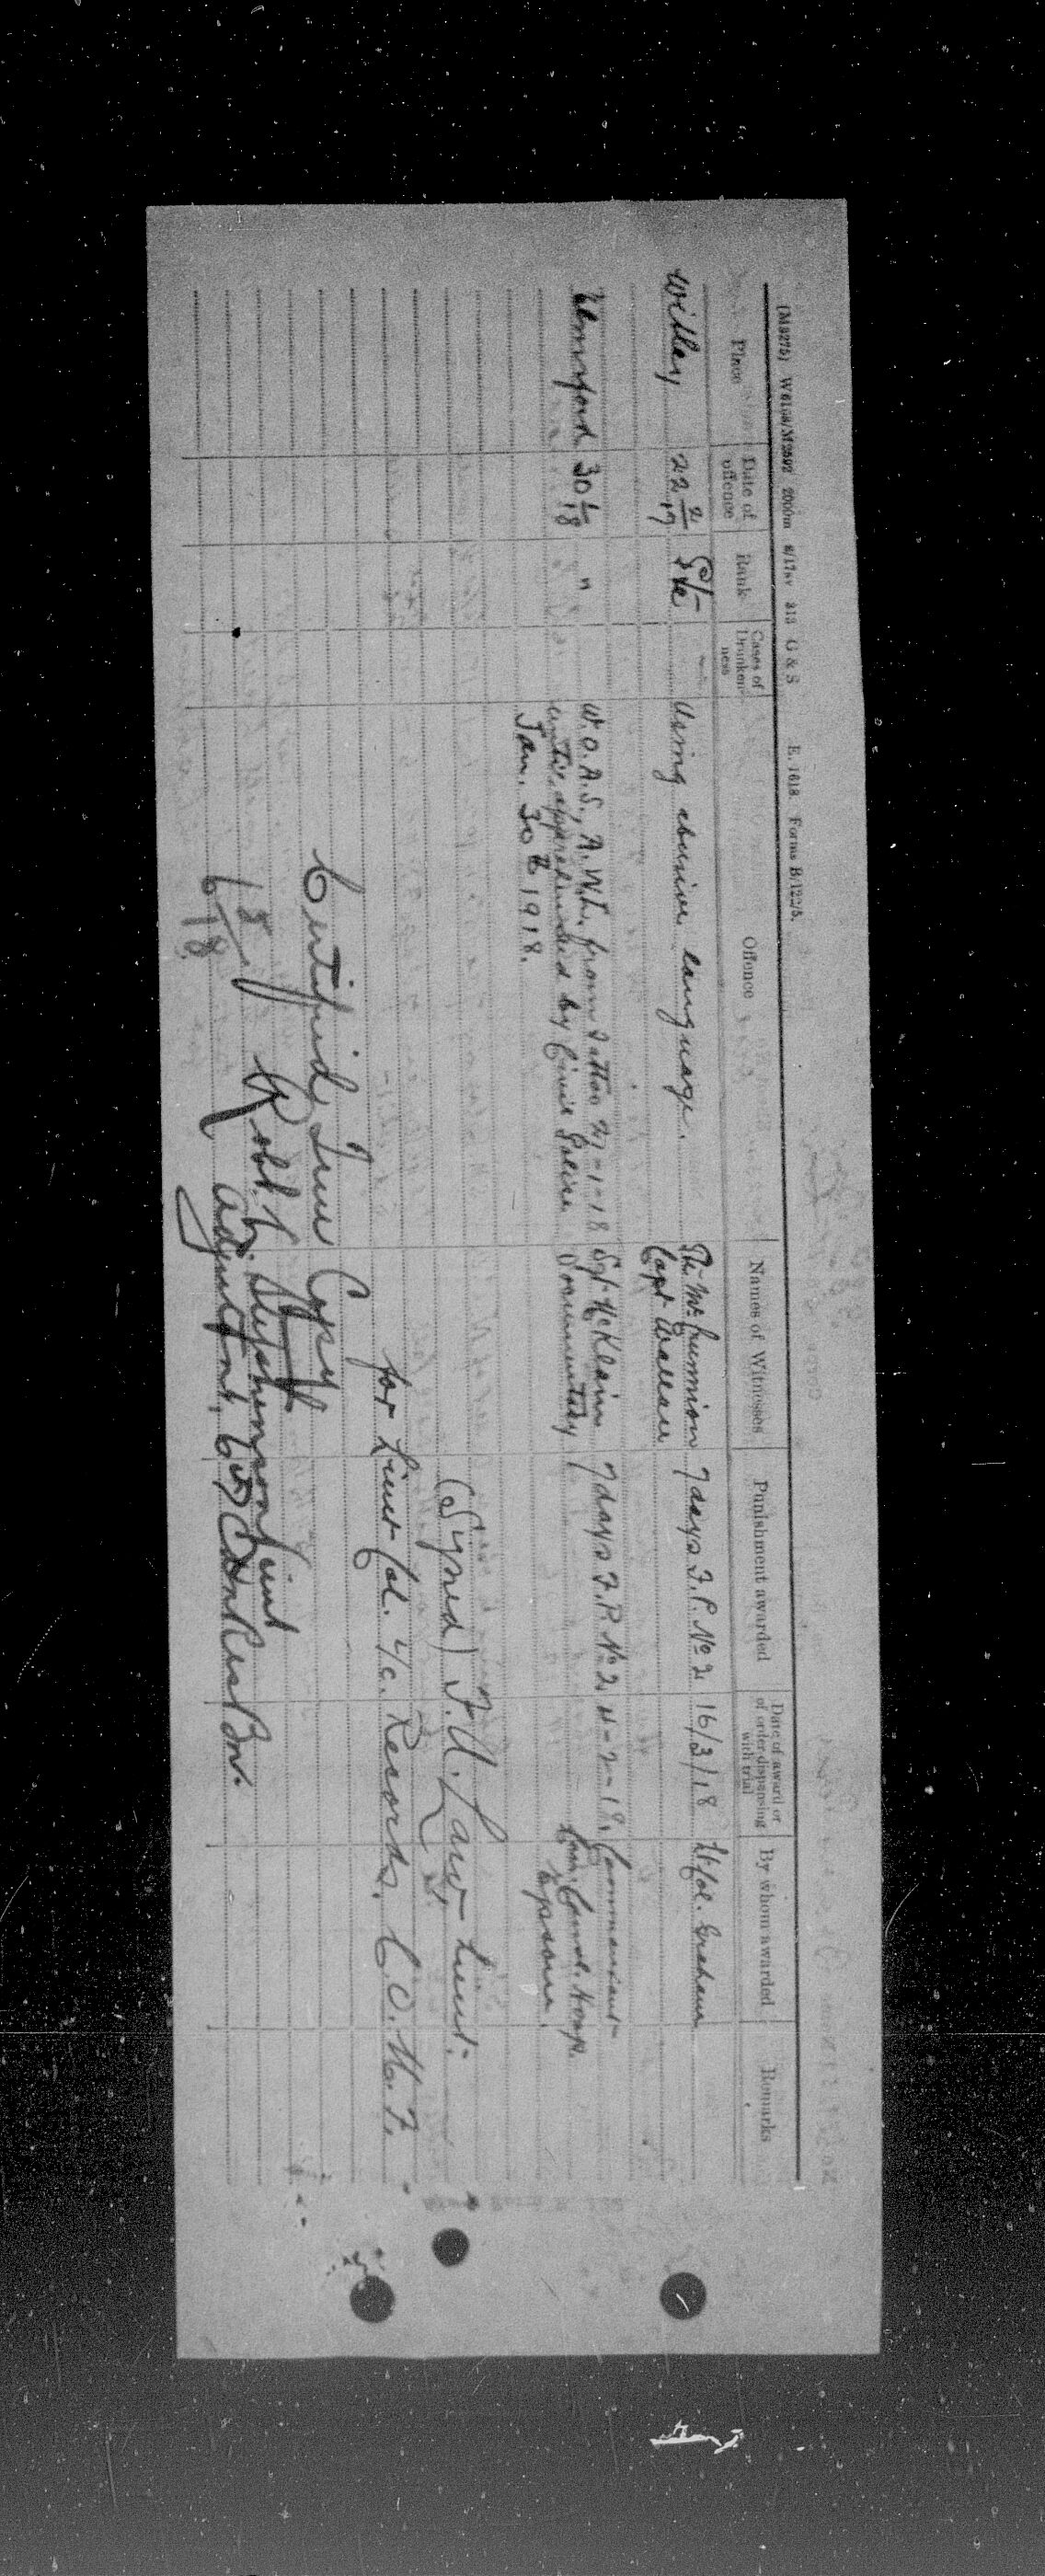 (M3275) W6108/M2592 2000m 8/17sv 213 G & S E. 1618 Forms B/122/5.
Place Date of offence Rank Cases of Drunkenness Offence Names of Witnesses Punishment awarded Date of award or of order dispensing with trial By whom awarded Remarks
Witley 22 2/17 Pte Using abusive language. Pte Mc 7 days F.P. No 2 16/3/18 Lt Col. Graham
Capt Wallace
30 1/18 " W.O.A.S., A.W.L. from Tattoo 21-1-18 Sgt McKlain 7 days F.P. No 2 11-2-18. Commandant
until apprehended by Civil Police Documentary Can. Convl. Hosp.
Jan. 30th 1918. Epsom.
(Signed) F.A. Law Lieut.
for Lieut Col. i/c. Records, C.O.M.F.
Certified True Copy
Robt Stephenson Lieut
Adjutant, Can Res Bn.
18